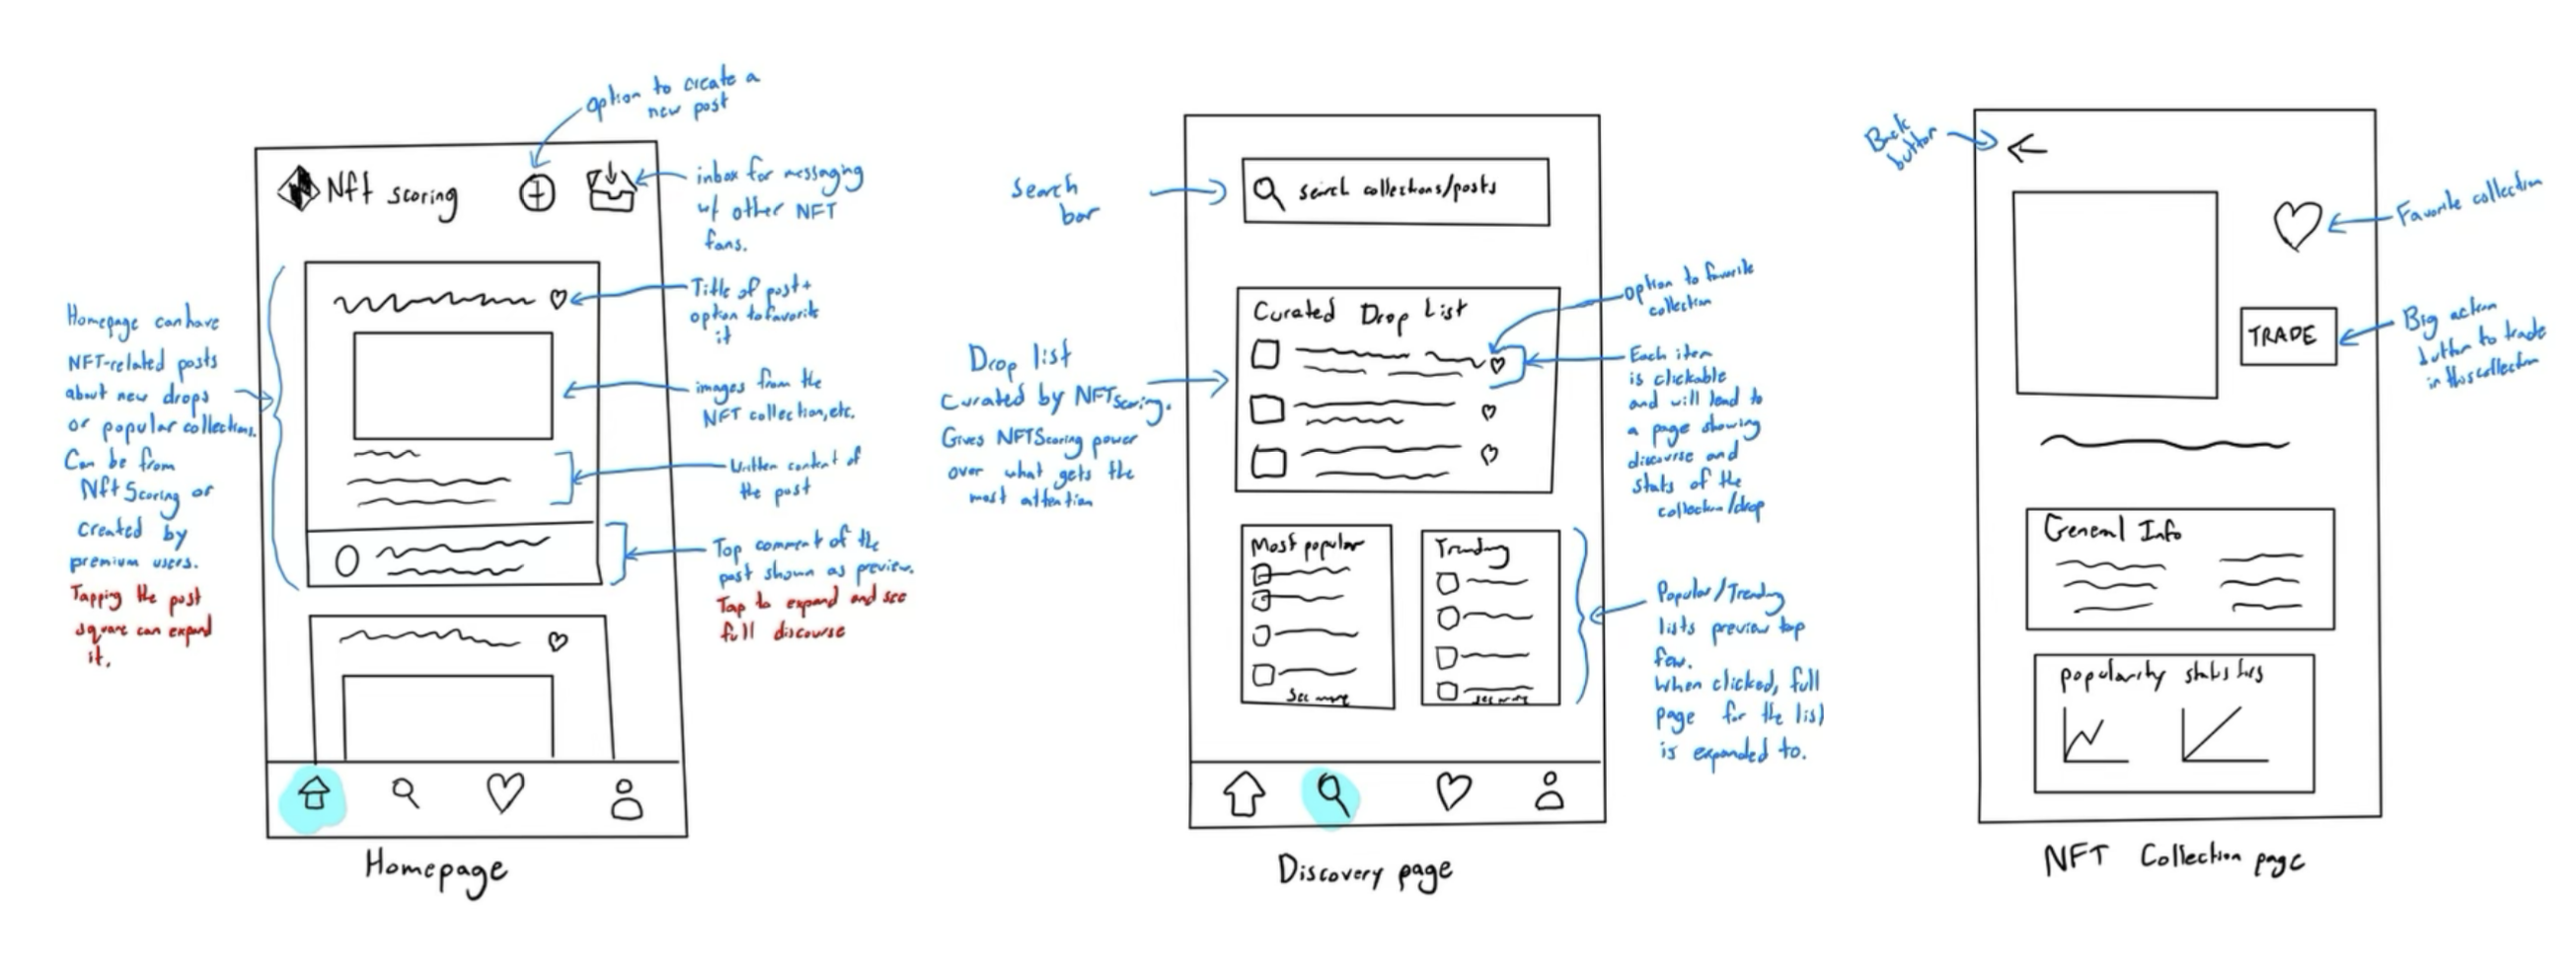 option to create a
new post
Nft scoring
inbox for messaging
w/ other NFT
fans.
Title of post +
option to favorite
it
Homepage can have
NFT-related posts
about new drops
or popular collections.
Can be from
Nft Scoring or
created by
premium users.
Tapping the post
square can expand
it.
images from the
NFT collection, etc.
Written content of
the post
Top comment of the
post shown as preview.
Tap to expand and see
full discourse
Homepage
Search
bar
search collections/posts
Curated Drop List
option to favorite
collection
Drop list
Curated by NFTScoring.
Gives NFTScoring power
over what gets the
most attention
Each item
is clickable
and will lead to
a page showing
discourse and
stats of the
collection/drop
Most popular
See more
Trending
see more
Popular/Trending
lists preview top
few.
When clicked, full
page for the list
is expanded to.
Discovery page
Back
button
Favorite collection
TRADE
Big action
button to trade
in this collection
General Info
popularity statistics
NFT Collection page